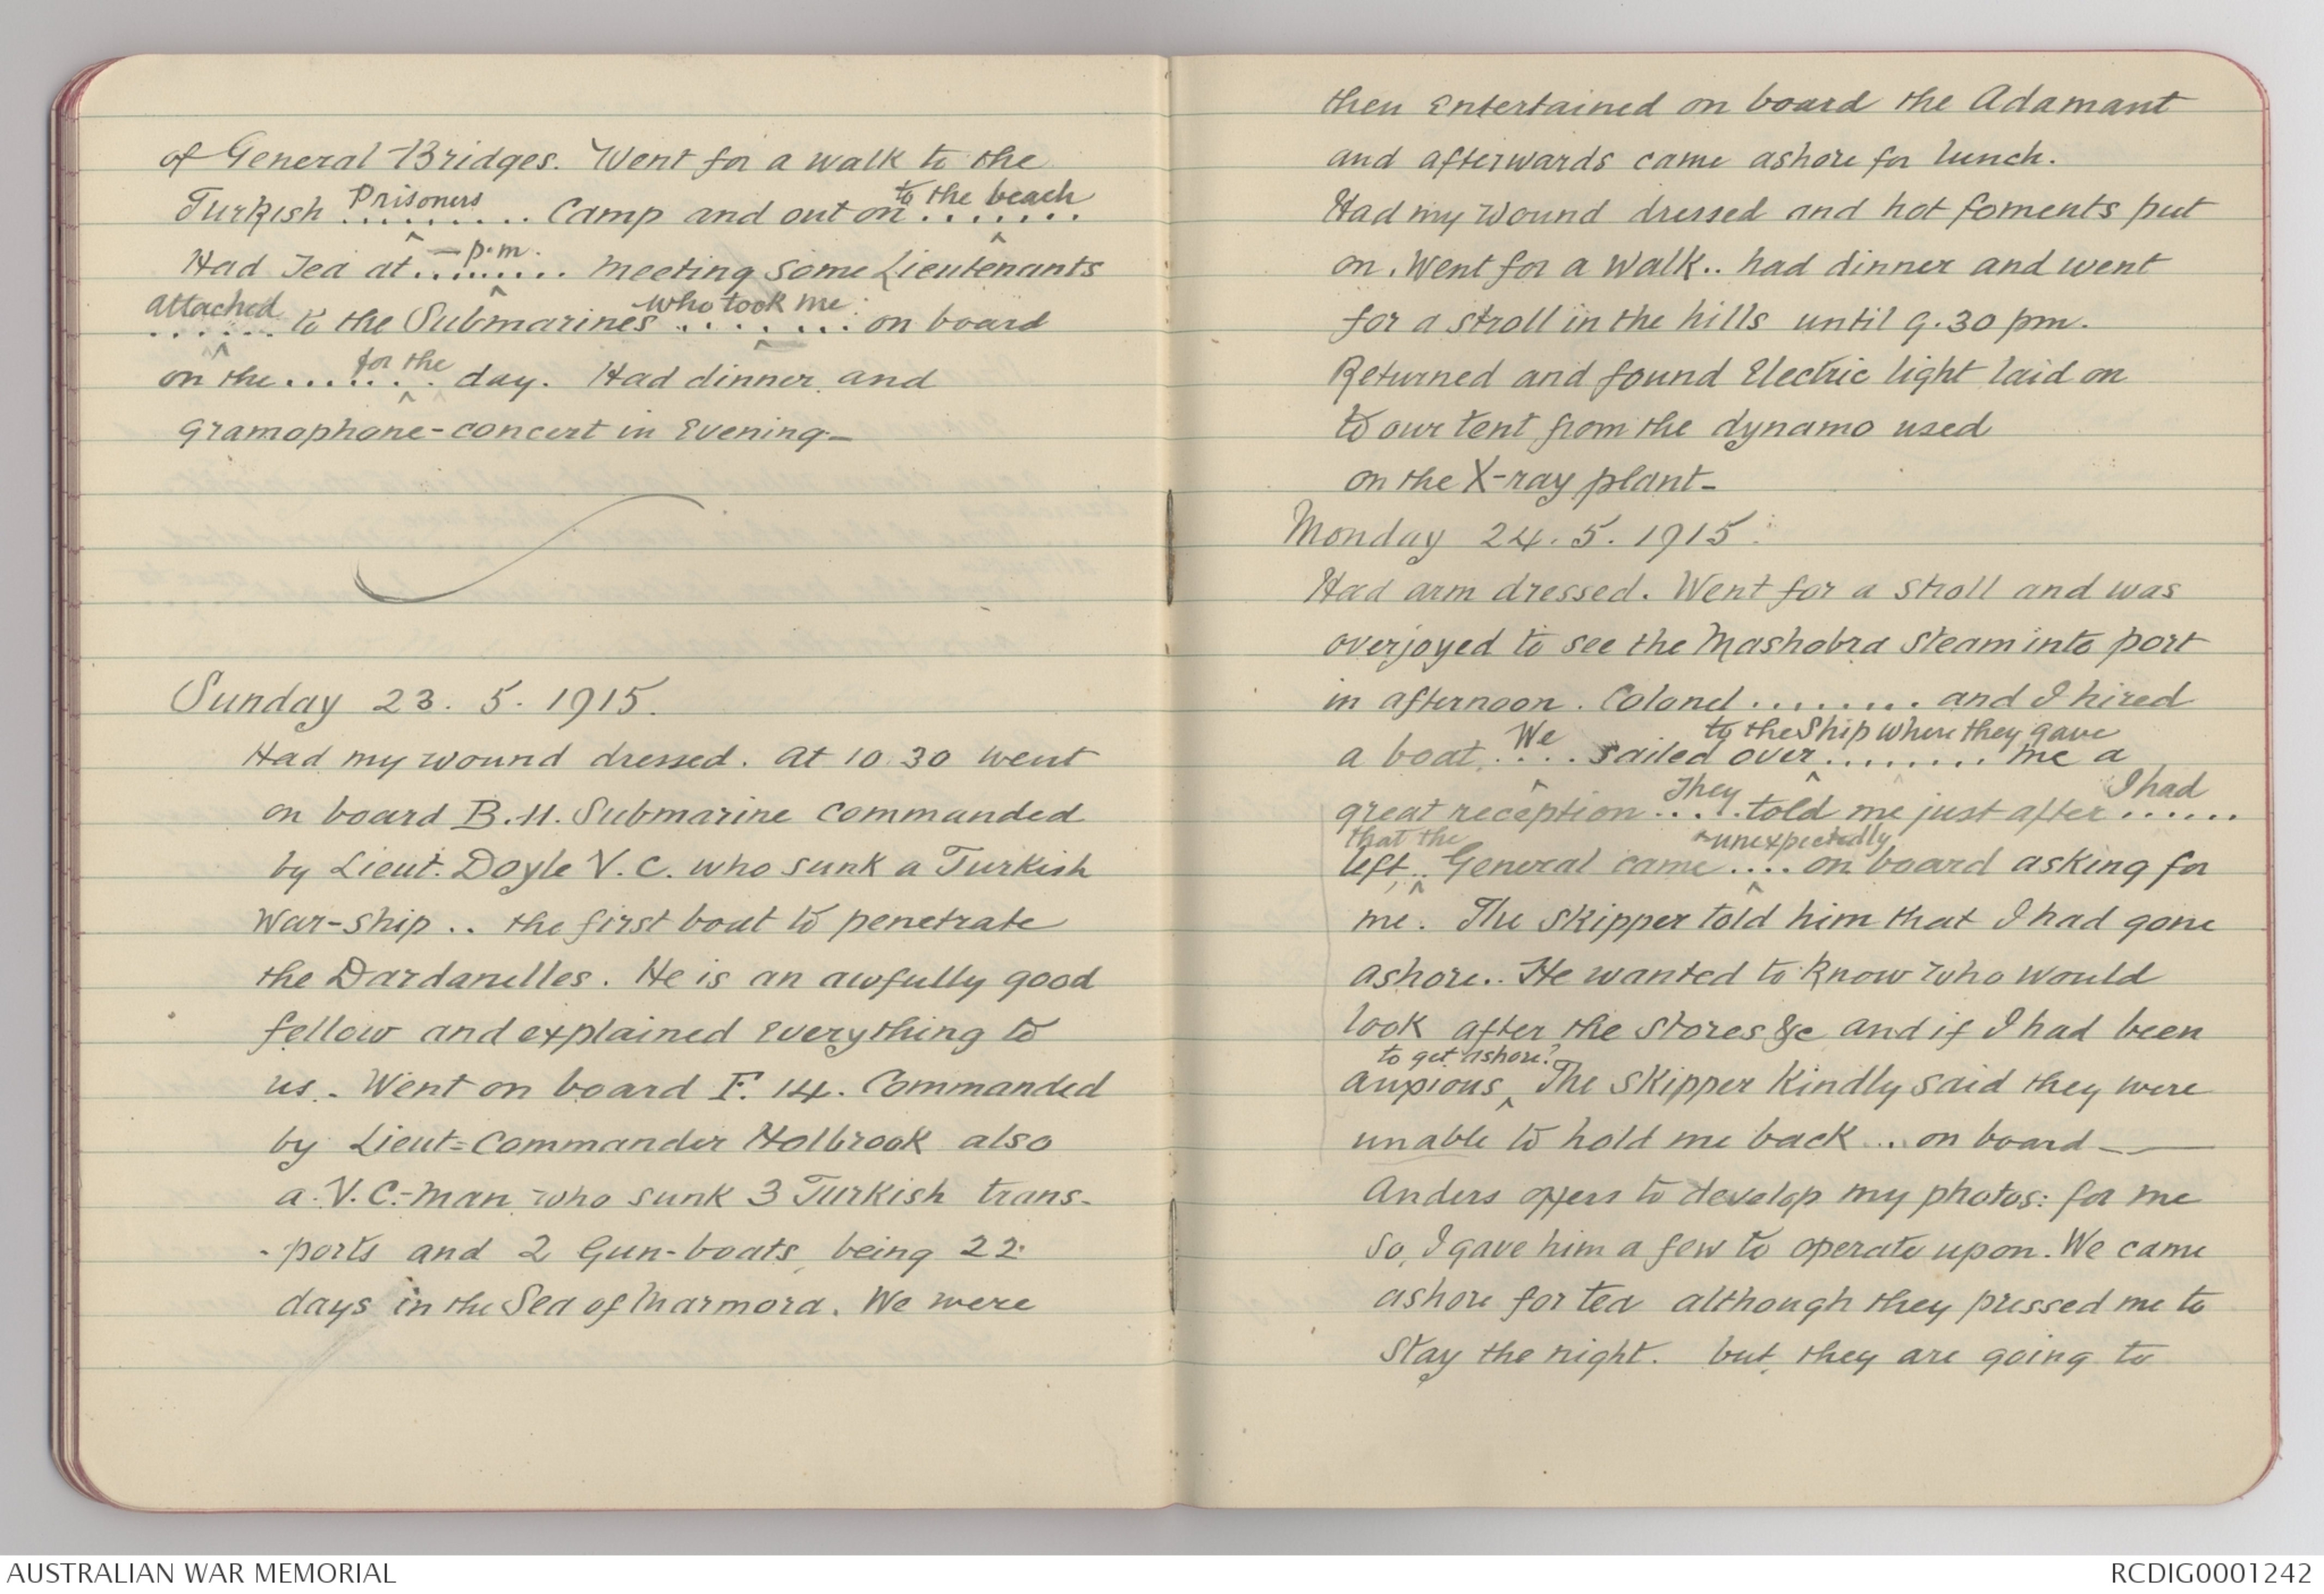 of General Bridges. Went for a walk to the
Turkish Prisoners ......... Camp and out on to the beach ........
Had Tea at — p.m. ......... meeting some Lieutenants
attached ....... to the Submarines who took me ........ on board
on the ....... for the day. Had dinner and
gramophone-concert in Evening—
Sunday 23. 5. 1915.
Had my wound dressed. At 10.30 went
on board B.11. Submarine commanded
by Lieut. Doyle V.C. who sunk a Turkish
War-ship .. the first boat to penetrate
the Dardanelles. He is an awfully good
fellow and explained Everything to
us. Went on board F. 14. Commanded
by Lieut=Commander Holbrook also
a V.C.-man who sunk 3 Turkish trans-
-ports and 2 Gun-boats, being 22
days in the Sea of Marmora. We were
then Entertained on board the Adamant
and afterwards came ashore for lunch.
Had my Wound dressed and hot foments put
on. Went for a Walk.. had dinner and went
for a stroll in the hills until 9.30 pm.
Returned and found Electric light laid on
to our tent from the dynamo used
on the X-ray plant—
Monday 24. 5. 1915.
Had arm dressed. Went for a stroll and was
overjoyed to see the Mashobra steam into port
in afternoon. Colonel ......... and I hired
a boat We .... sailed over to the Ship where they gave ........ me a
great reception They .... told me just after I had ......
left that the .. General came unexpectedly .... on board asking for
me. The Skipper told him that I had gone
ashore.. He wanted to know who would
look after the stores &c and if I had been
anxious to get ashore? The Skipper kindly said they were
unable to hold me back ... on board —
Anders offers to develop my photos: for me
so, I gave him a few to operate upon. We came
ashore for tea although they pressed me to
stay the night. but, they are going to
AUSTRALIAN WAR MEMORIAL
RCDIG0001242